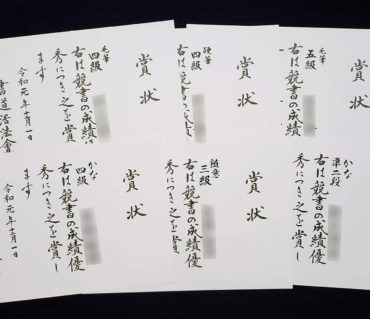 賞状
毛筆
五級
右は競書の成績
賞状
硬筆
四級
右は競書の成績
賞状
毛筆
四級
右は競書の成績
秀につき之を賞
ます
令和元年十月一日
書道
賞状
かな
準二段
右は競書の成績優
秀につき之を賞し
賞状
随意
三級
右は競書の成績優
秀につき之を賞し
賞状
かな
四級
右は競書の成績優
秀につき之を賞し
ます